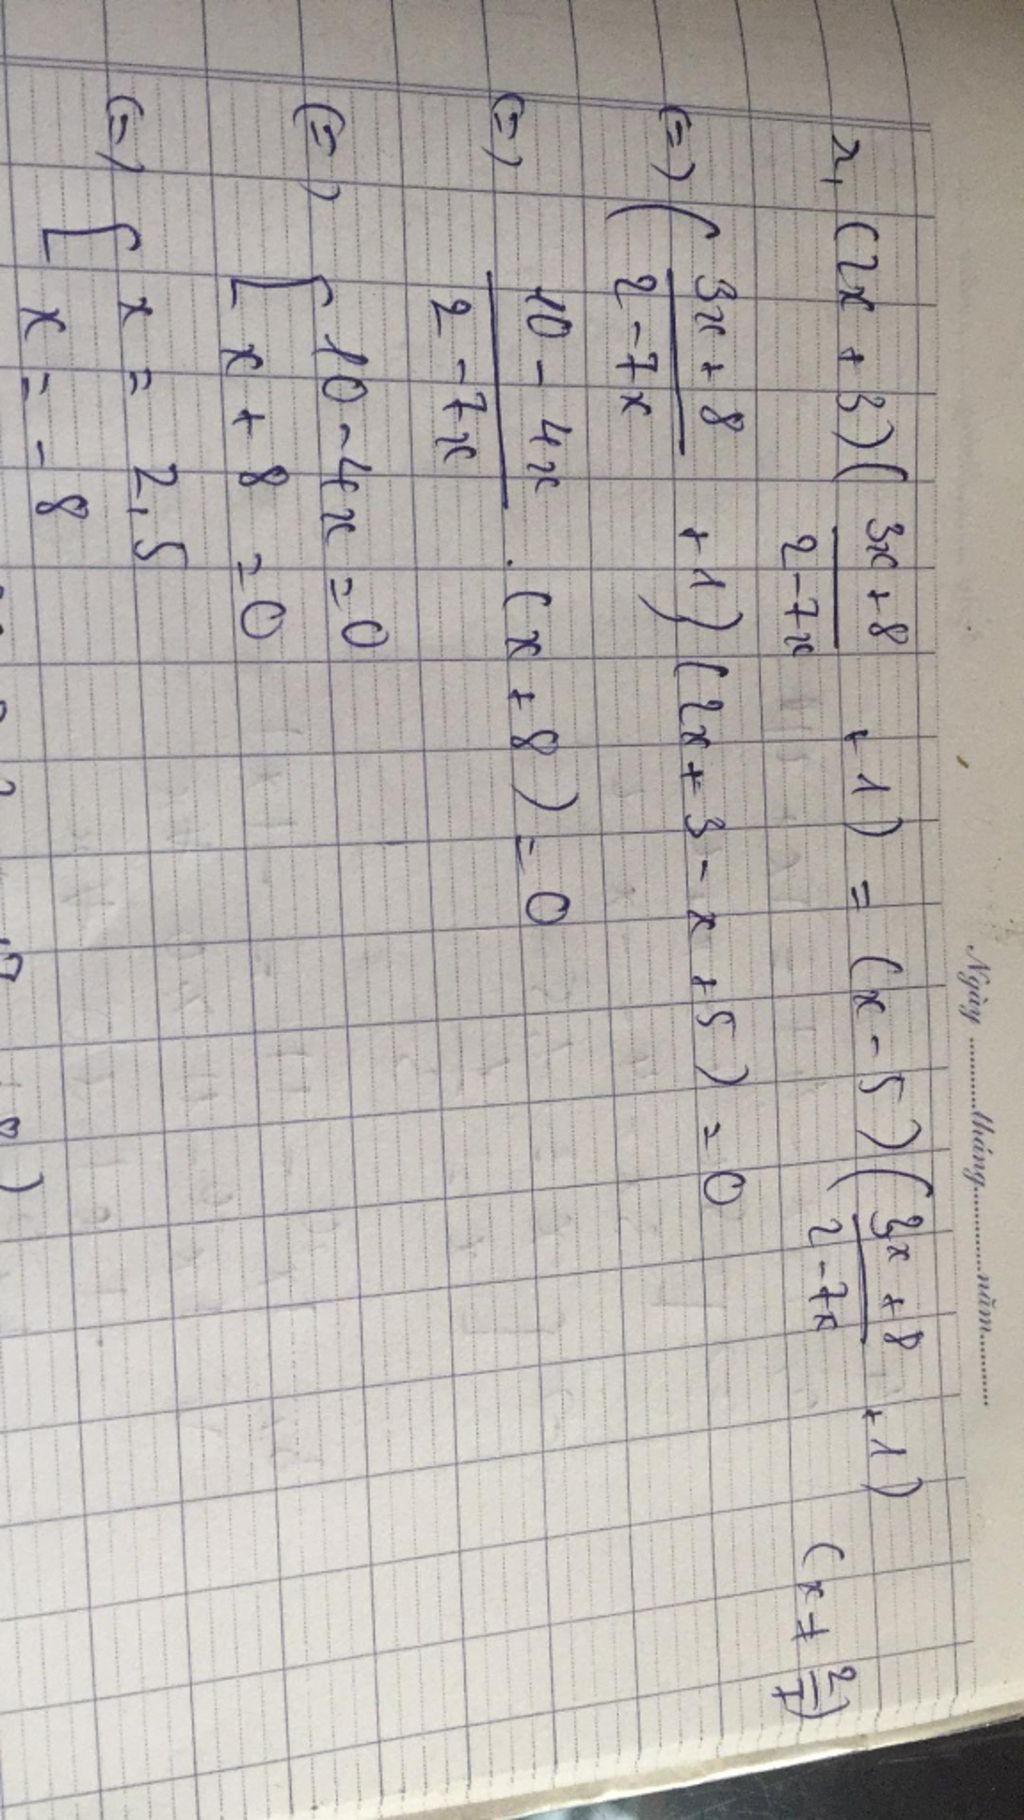 Ngày ............tháng............năm............
r, (2x + 3)((3x + 8)/(2 - 7x) + 1) = (x - 5)((3x + 8)/(2 - 7x) + 1) (x ≠ 2/7)
(=) ((3x + 8)/(2 - 7x) + 1)(2x + 3 - x + 5) = 0
(=) (10 - 4x)/(2 - 7x) . (x + 8) = 0
(=) [ 10 - 4x = 0
x + 8 = 0
(=) [ x = 2,5
x = - 8